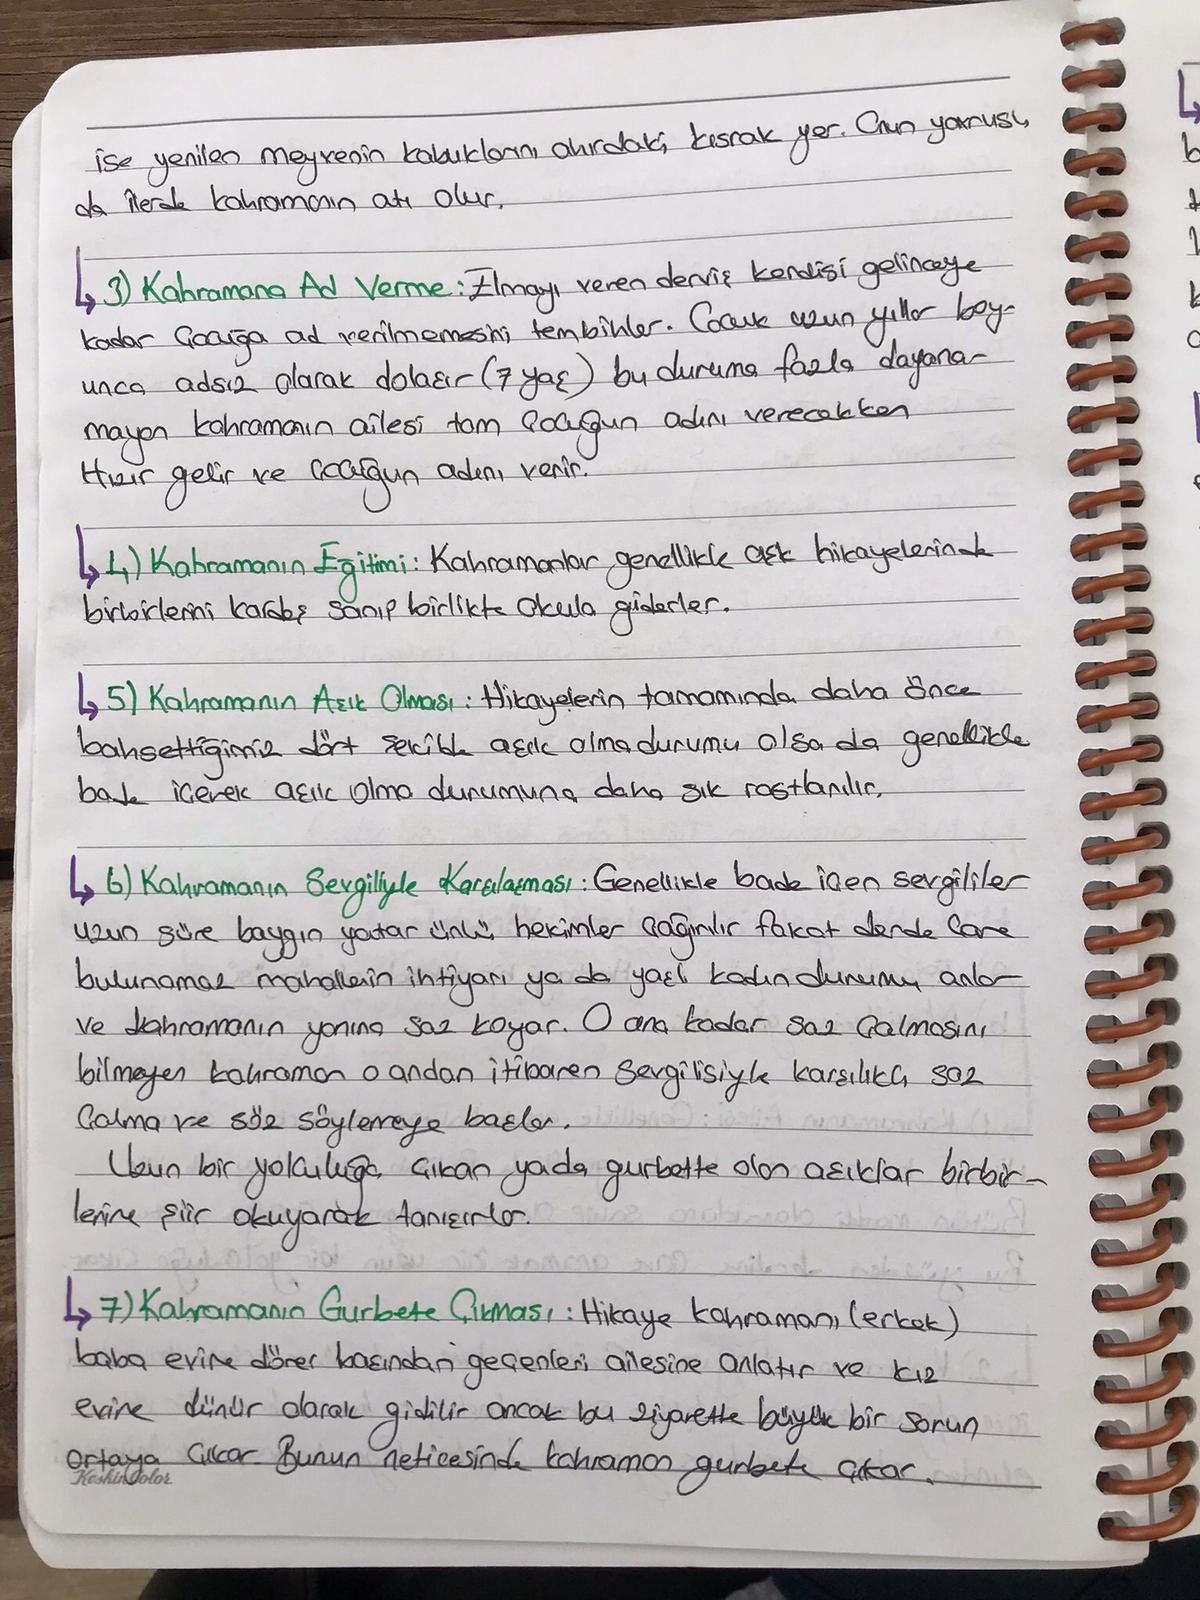 ise yenilen meyvenin kabuklarını ahırdaki kısrak yer. Onun yavrusu
da ilerde kahramanın atı olur.
↳ 3) Kahramana Ad Verme: Elmayı veren derviş kendisi gelinceye
kadar çocuğa ad verilmemesini tembihler. Çocuk uzun yıllar boy-
unca adsız olarak dolaşır (7 yaş) bu duruma fazla dayana-
mayan kahramanın ailesi tam çocuğun adını verecekken
Hızır gelir ve çocuğun adını verir.
↳ 4) Kahramanın Eğitimi: Kahramanlar genellikle aşk hikayelerinde
birbirlerini kardeş sanıp birlikte okula giderler.
↳ 5) Kahramanın Aşık Olması: Hikayelerin tamamında daha önce
bahsettiğimiz dört şekilde aşık olma durumu olsa da genellikle
bade içerek aşık olma durumuna daha sık rastlanılır.
↳ 6) Kahramanın Sevgiliyle Karşılaşması: Genellikle bade içen sevgililer
uzun süre baygın yatar ünlü hekimler çağırılır fakat derde çare
bulunamaz mahallenin ihtiyarı ya da yaşlı kadın durumu anlar
ve kahramanın yanına saz koyar. O ana kadar saz çalmasını
bilmeyen kahraman o andan itibaren sevgilisiyle karşılıklı saz
çalma ve söz söylemeye başlar.
Uzun bir yolculuğa çıkan yada gurbette olan aşıklar birbir-
lerine şiir okuyarak tanışırlar.
↳ 7) Kahramanın Gurbete Çıkması: Hikaye kahramanı (erkek)
baba evine döner başından geçenleri ailesine anlatır ve kız
evine dünür olarak gidilir ancak bu ziyarette büyük bir sorun
ortaya çıkar. Bunun neticesinde kahraman gurbete çıkar.